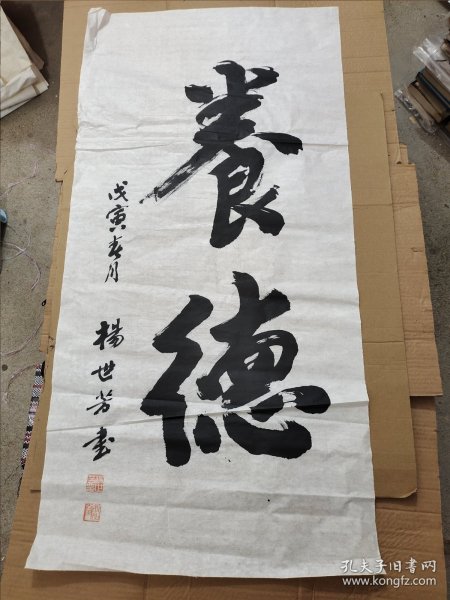 養德
戊寅春月 楊世芳書
孔夫子旧书网
www.kongfz.com